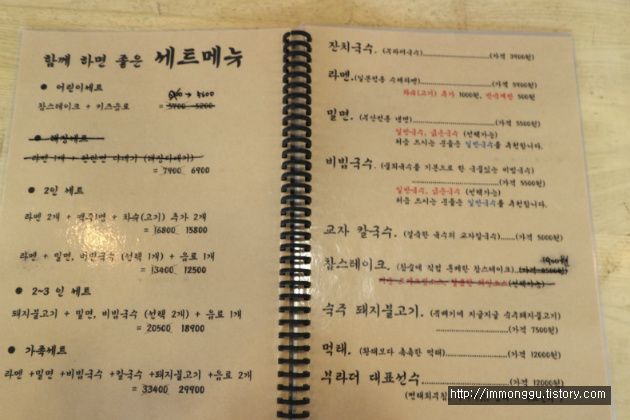 함께 하면 좋은 세트메뉴
● 어린이세트
참스테이크 + 키즈음료 = 5700 5200
→ 5600
● 해장세트
= 7900 6900
● 2인 세트
라멘 2개 + 맥주1병 + 차슈(고기) 추가 2개
= 16800 15800
라멘 + 밀면, 비빔국수 (선택 1개) + 음료 1개
= 13400 12500
● 2~3 인 세트
돼지불고기 + 밀면, 비빔국수 (선택 2개) + 음료 1개
= 20500 18900
● 가족세트
라멘 +밀면 +비빔국수 +칼국수 +돼지불고기 +음료 2개
= 33400 29900
잔치국수. (부라더국수)(가격 3900원)
라멘.(일본전통 수제라멘)(가격 5900원)
차슈(고기) 추가 1000원, 반숙계란 500원
밀면. (부산전통 냉면)(가격 5500원)
일반국수, 굵은국수 (선택가능)
처음 드시는 분들은 일반국수를 추천합니다.
비빔국수.
(가격 5500원)
일반국수, 굵은국수 (선택가능)
처음 드시는 분들은 일반국수를 추천합니다.
교자 칼국수. (칼국수)(가격 5000원)
참스테이크. (참숯에 직접 훈제한 참스테이크)
(선택가능)
숙주 돼지불고기. (뚝배기에 지글지글 숙주돼지불고기)
(가격 7500원)
먹태. (황태보다 촉촉한 먹태)(가격 12000원)
부라더 대표선수(가격 12000원)
http://immonggu.tistory.com